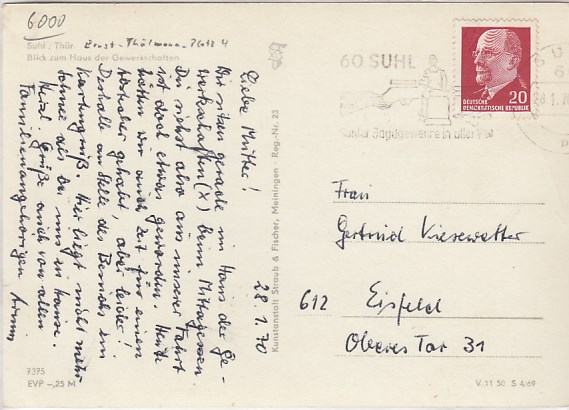 6.000
Suhl / Thür. Ernst-Thälmann-Platz 4
Blick zum Haus der Gewerkschaften
28.1.70
Liebe Mutter!
Wir sitzen gerade im Haus der Ge-
werkschaften (X) beim Mittagessen
Du siehst also aus unserer Fahrt
ist doch etwas geworden. Heute
hätten wir auch Zeit für einen
Abstecher gehabt, aber leider!
Deshalb an Stelle des Besuchs ein
Kartengruß. Hier liegt nicht mehr
Schnee als bei uns zu Hause.
Herzl. Grüße auch von allen
Familienangehörigen
7375
EVP -,25 M
Kunstanstalt Straub & Fischer, Meiningen · Reg.-Nr. 23
60 SUHL
Suhler Jagdgewehre in aller Welt
DEUTSCHE
DEMOKRATISCHE REPUBLIK
20
Frau
Gertrud Kiesewetter
612 Eisfeld
Oberes Tor 31
V 11 50 S 4/69